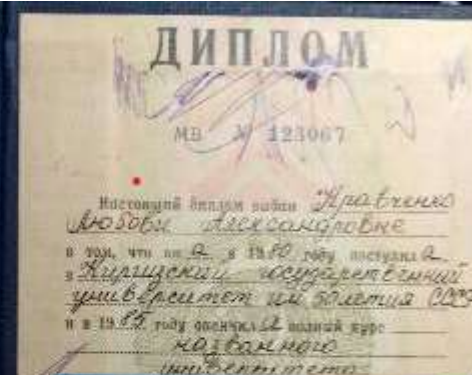 ДИПЛОМ
МВ № 123067
Настоящий диплом выдан Кравченко
Любови Александровне
в том, что он а в 1980 году поступил а
в Киргизский государственный
университет им 50летия СССР
и в 1985 году окончил а полный курс
названного
университета